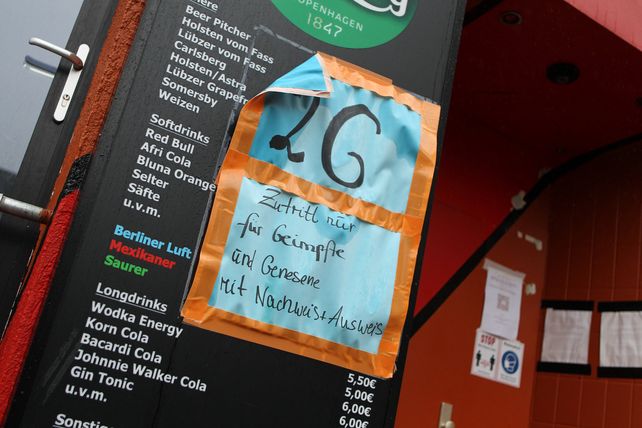 COPENHAGEN
1847
Beer Pitcher
Holsten vom Fass
Lübzer vom Fass
Carlsberg
Holsten/Astra
Lübzer Grapefr
Somersby
Weizen
Softdrinks
Red Bull
Afri Cola
Bluna Orange
Selter
Säfte
u.v.m.
Berliner Luft
Mexikaner
Saurer
Longdrinks
Wodka Energy
Korn Cola
Bacardi Cola
Johnnie Walker Cola
Gin Tonic
u.v.m.
5,50€
5,00€
6,00€
6,00€
2G
Zutritt nur
für Geimpfte
und Genesene
mit Nachweis + Ausweis
STOP